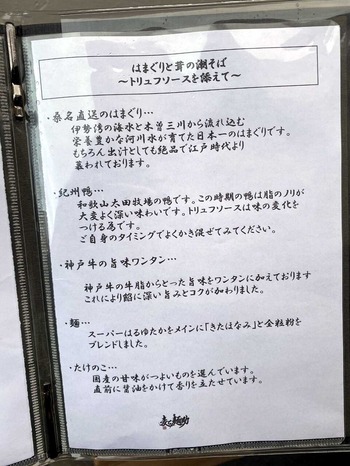 はまぐりと茸の潮そば
～トリュフソースを添えて～
・桑名直送のはまぐり…
伊勢湾の海水と木曽三川から流れ込む
栄養豊かな河川水が育てた日本一のはまぐりです。
もちろん出汁としても絶品で江戸時代より
慕われております。
・紀州鴨…
和歌山太田牧場の鴨です。この時期の鴨は脂のノリが
大変よく深い味わいです。トリュフソースは味の変化を
つける為です。
ご自身のタイミングでよくかき混ぜてみてください。
・神戸牛の旨味ワンタン…
神戸牛の牛脂からとった旨味をワンタンに加えております
これにより餡に深い旨みとコクが加わりました。
・麺…
スーパーはるゆたかをメインに「きたほなみ」と全粒粉を
ブレンドしました。
・たけのこ…
国産の甘味がつよいものを選んでいます。
直前に醤油をかけて香りを立たせています。